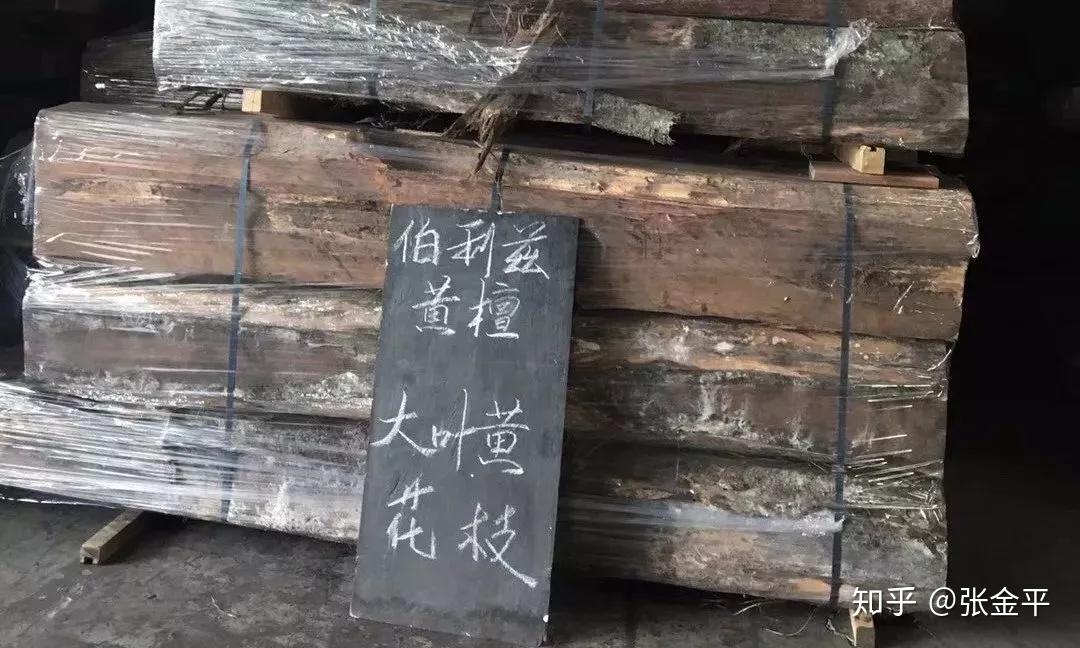 伯利兹
黄檀
大叶黄
花枝
知乎 @张金平